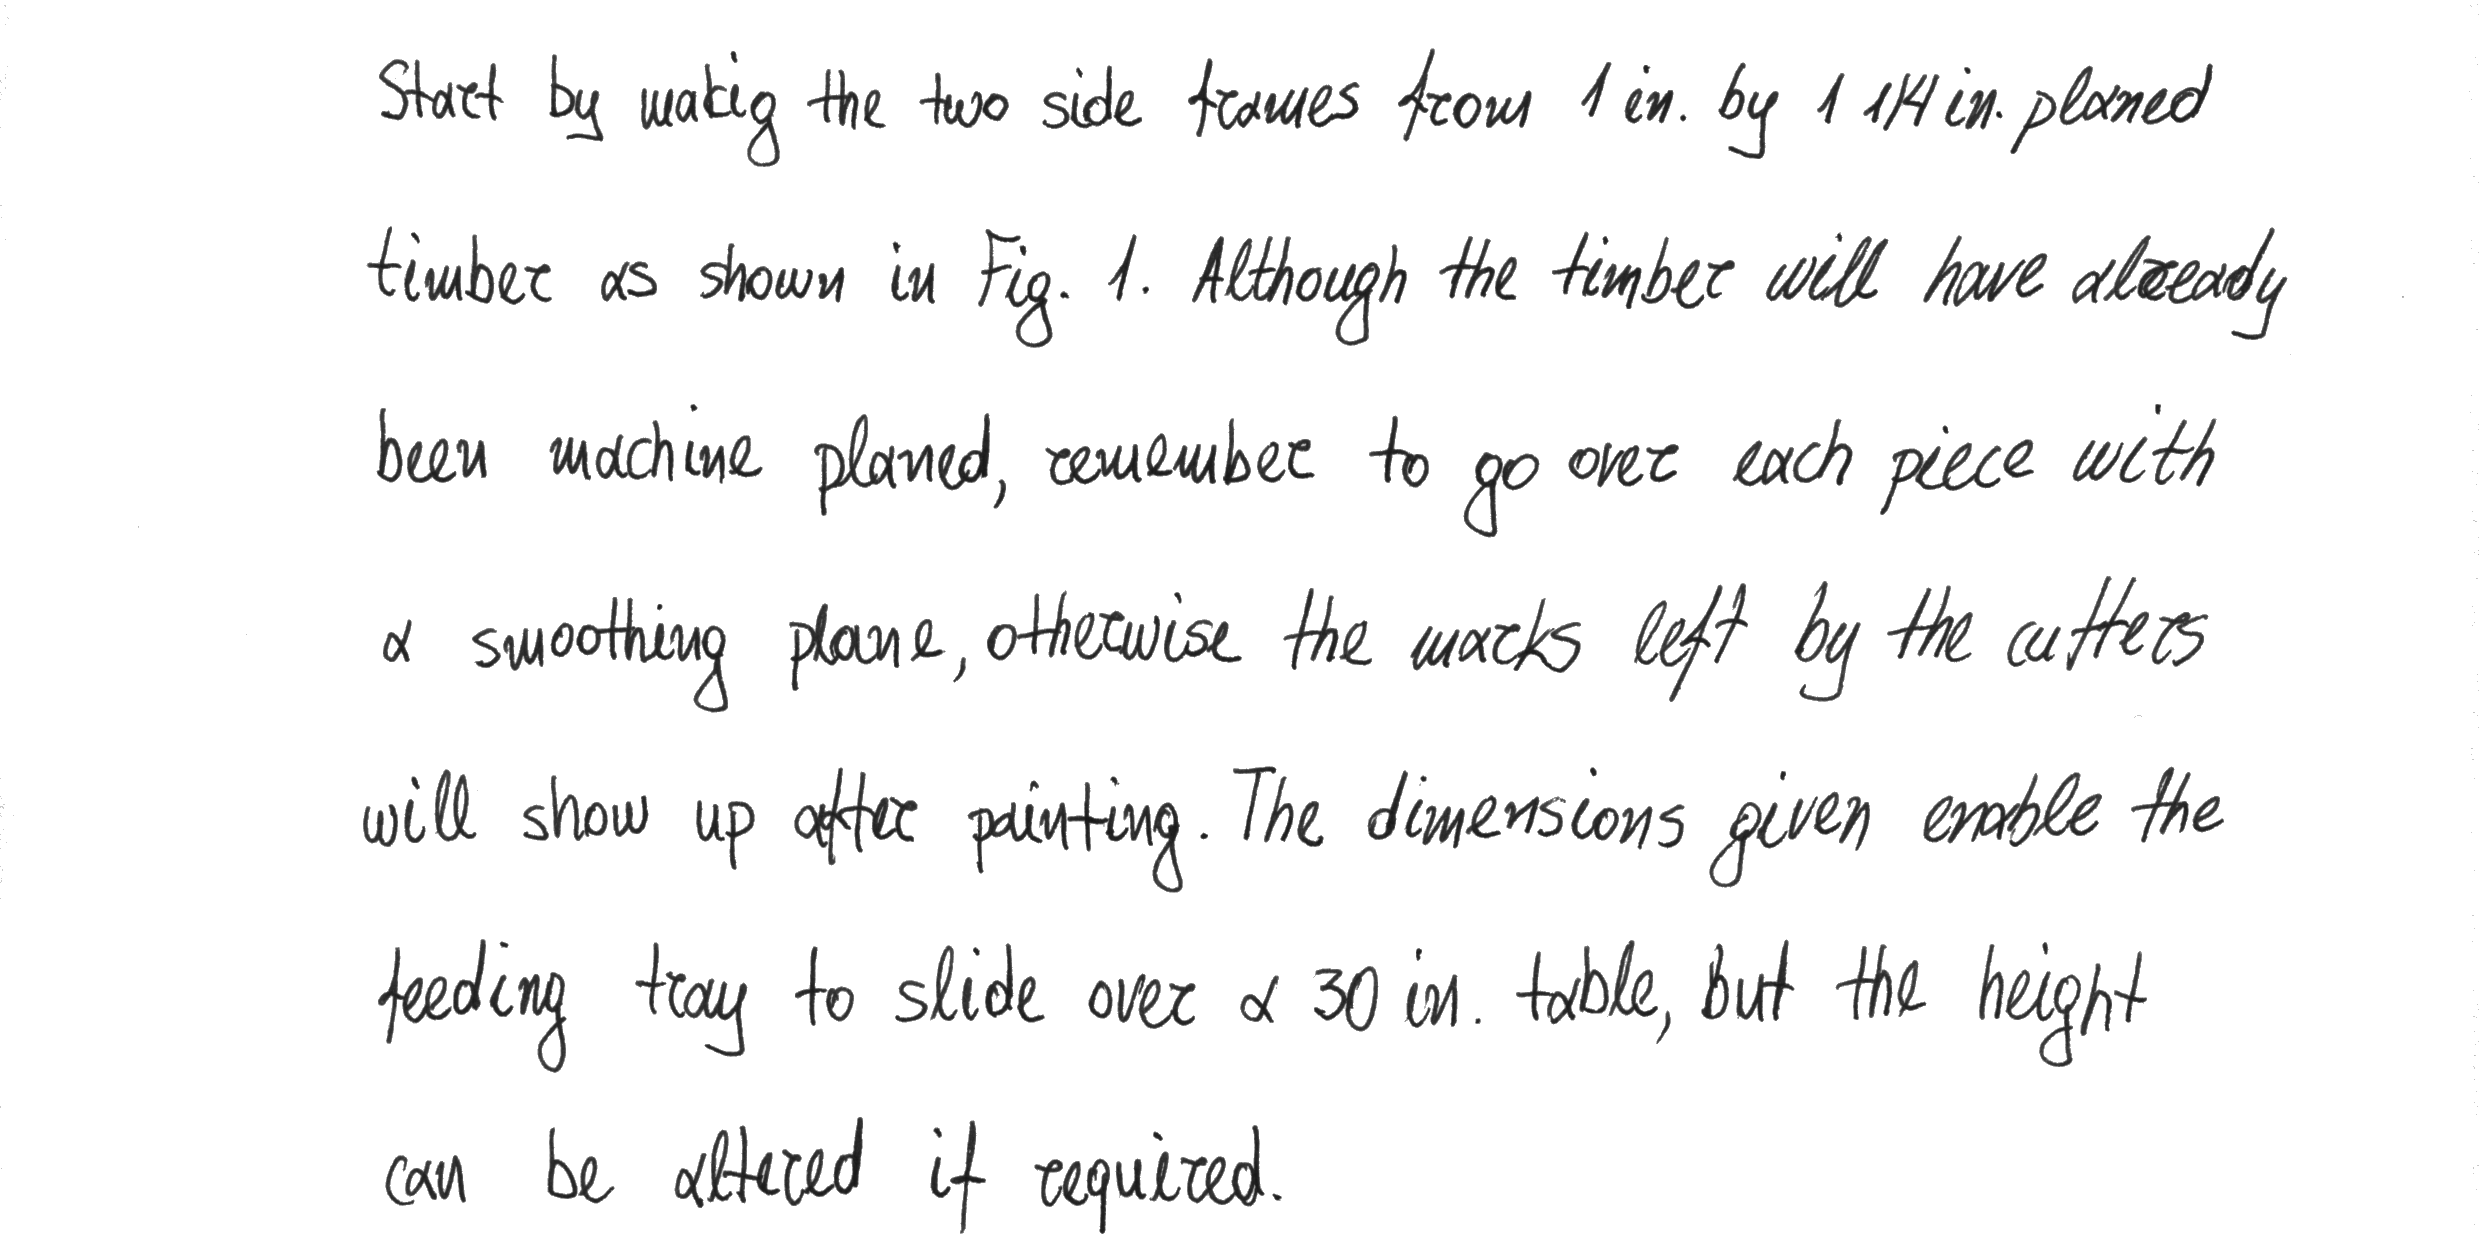 Start by makig the two side frames from 1 in. by 1 1/4 in. planed
timber as shown in Fig. 1. Although the timber will have already
been machine planed, remember to go over each piece with
a smoothing plane, otherwise the marks left by the cutters
will show up after painting. The dimensions given enable the
feeding tray to slide over a 30 in. table, but the height
can be altered if required.